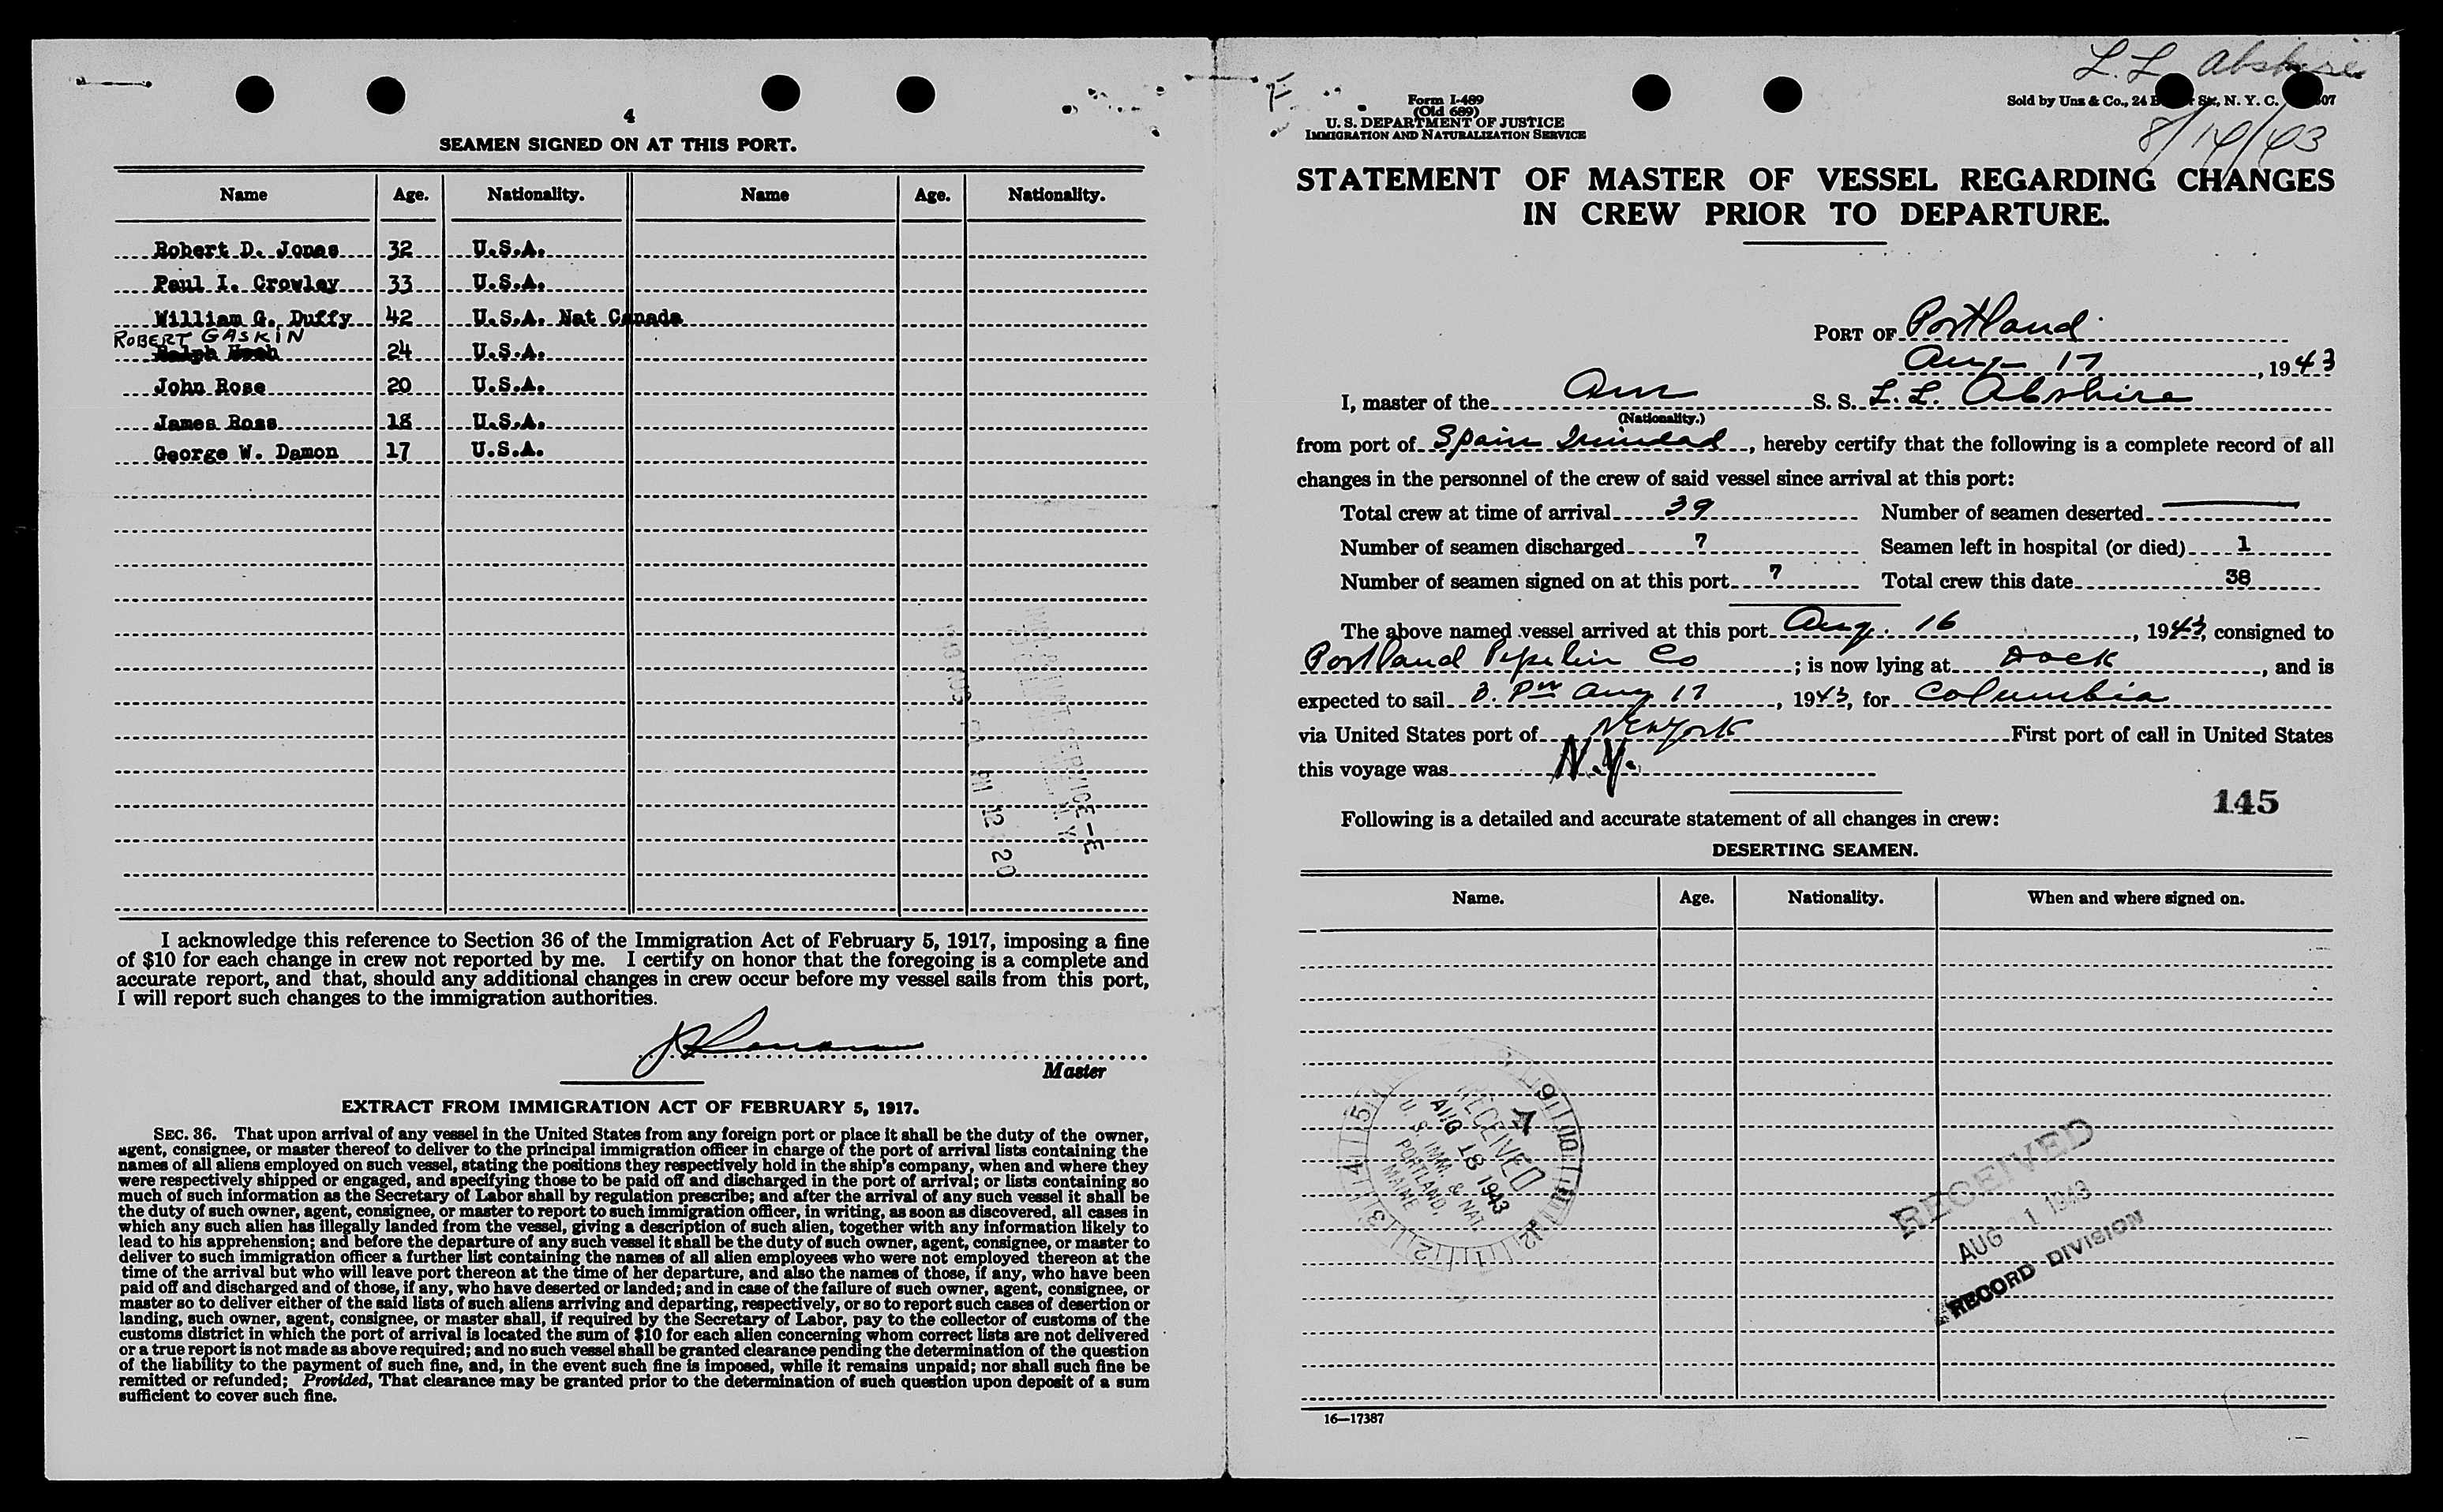 4
SEAMEN SIGNED ON AT THIS PORT.
Name Age. Nationality. Name Age. Nationality.
Robert D. Jones 32 U.S.A.
Paul I. Crowley 33 U.S.A.
William G. Duffy 42 U.S.A. Nat Canada
ROBERT GASKIN
Ralph 24 U.S.A.
John Rose 20 U.S.A.
James Ross 18 U.S.A.
George W. Damon 17 U.S.A.
I acknowledge this reference to Section 36 of the Immigration Act of February 5, 1917, imposing a fine
of $10 for each change in crew not reported by me. I certify on honor that the foregoing is a complete and
accurate report, and that, should any additional changes in crew occur before my vessel sails from this port,
I will report such changes to the immigration authorities.
Master
EXTRACT FROM IMMIGRATION ACT OF FEBRUARY 5, 1917.
SEC. 36. That upon arrival of any vessel in the United States from any foreign port or place it shall be the duty of the owner,
agent, consignee, or master thereof to deliver to the principal immigration officer in charge of the port of arrival lists containing the
names of all aliens employed on such vessel, stating the positions they respectively hold in the ship's company, when and where they
were respectively shipped or engaged, and specifying those to be paid off and discharged in the port of arrival; or lists containing so
much of such information as the Secretary of Labor shall by regulation prescribe; and after the arrival of any such vessel it shall be
the duty of such owner, agent, consignee, or master to report to such immigration officer, in writing, as soon as discovered, all cases in
which any such alien has illegally landed from the vessel, giving a description of such alien, together with any information likely to
lead to his apprehension; and before the departure of any such vessel it shall be the duty of such owner, agent, consignee, or master to
deliver to such immigration officer a further list containing the names of all alien employees who were not employed thereon at the
time of the arrival but who will leave port thereon at the time of her departure, and also the names of those, if any, who have been
paid off and discharged and of those, if any, who have deserted or landed; and in case of the failure of such owner, agent, consignee, or
master so to deliver either of the said lists of such aliens arriving and departing, respectively, or so to report such cases of desertion or
landing, such owner, agent, consignee, or master shall, if required by the Secretary of Labor, pay to the collector of customs of the
customs district in which the port of arrival is located the sum of $10 for each alien concerning whom correct lists are not delivered
or a true report is not made as above required; and no such vessel shall be granted clearance pending the determination of the question
of the liability to the payment of such fine, and, in the event such fine is imposed, while it remains unpaid; nor shall such fine be
remitted or refunded; Provided, That clearance may be granted prior to the determination of such question upon deposit of a sum
sufficient to cover such fine.
L. L. Abshire
Form I-489
(Old 689)
U. S. DEPARTMENT OF JUSTICE
IMMIGRATION AND NATURALIZATION SERVICE
Sold by Unz & Co., 24 Str, N. Y. C. 07
8/19/43
STATEMENT OF MASTER OF VESSEL REGARDING CHANGES
IN CREW PRIOR TO DEPARTURE.
PORT OF Portland
Aug 17, 1943
I, master of the Am S. S. L. L. Abshire
(Nationality.)
from port of Spain Trinidad, hereby certify that the following is a complete record of all
changes in the personnel of the crew of said vessel since arrival at this port:
Total crew at time of arrival 39 Number of seamen deserted
Number of seamen discharged 7 Seamen left in hospital (or died) 1
Number of seamen signed on at this port 7 Total crew this date 38
The above named vessel arrived at this port Aug. 16, 1943, consigned to
Portland Pipelin Co; is now lying at Dock, and is
expected to sail 3. Pm Aug 17, 1943, for Columbia
via United States port of New York First port of call in United States
this voyage was N.Y.
145
Following is a detailed and accurate statement of all changes in crew:
DESERTING SEAMEN.
Name. Age. Nationality. When and where signed on.
RECEIVED
AUG 18 1943
U. S. IMM. & NAT.
PORTLAND,
MAINE
RECEIVED
AUG 21 1943
RECORD DIVISION
16—17387